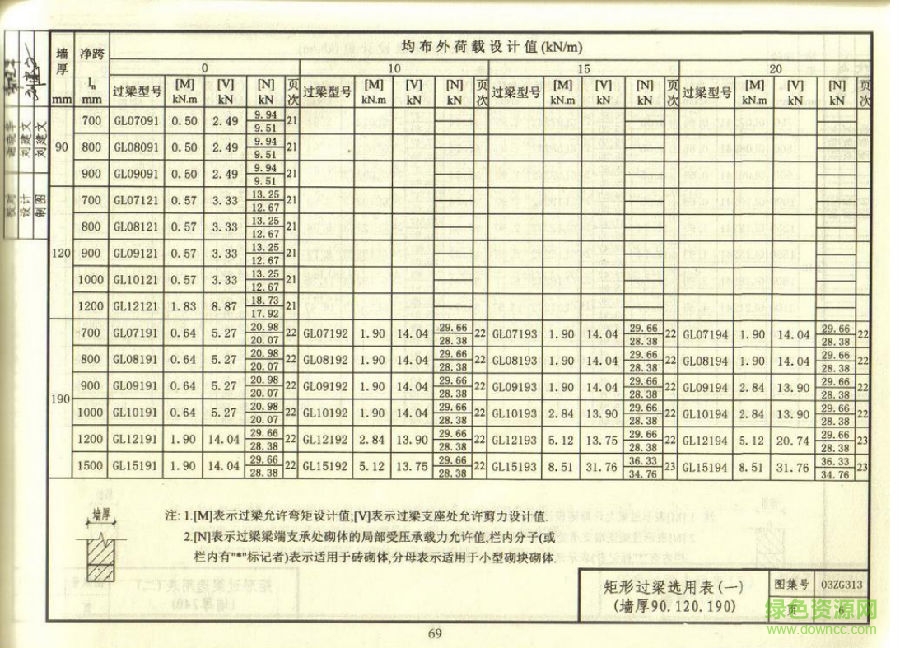 均布外荷载设计值(kN/m)
墙厚 mm 净跨 ln mm 0 10 15 20
过梁型号 [M] kN.m [V] kN [N] kN 页次 过梁型号 [M] kN.m [V] kN [N] kN 页次 过梁型号 [M] kN.m [V] kN [N] kN 页次 过梁型号 [M] kN.m [V] kN [N] kN 页次
90 700 GL07091 0.50 2.49 9.94/9.51 21
800 GL08091 0.50 2.49 9.94/9.51 21
900 GL09091 0.50 2.49 9.94/9.51 21
120 700 GL07121 0.57 3.33 13.25/12.67 21
800 GL08121 0.57 3.33 13.25/12.67 21
900 GL09121 0.57 3.33 13.25/12.67 21
1000 GL10121 0.57 3.33 13.25/12.67 21
1200 GL12121 1.83 8.87 18.73/17.92 21
190 700 GL07191 0.64 5.27 20.98/20.07 22 GL07192 1.90 14.04 29.66/28.38 22 GL07193 1.90 14.04 29.66/28.38 22 GL07194 1.90 14.04 29.66/28.38 22
800 GL08191 0.64 5.27 20.98/20.07 22 GL08192 1.90 14.04 29.66/28.38 22 GL08193 1.90 14.04 29.66/28.38 22 GL08194 1.90 14.04 29.66/28.38 22
900 GL09191 0.64 5.27 20.98/20.07 22 GL09192 1.90 14.04 29.66/28.38 22 GL09193 1.90 14.04 29.66/28.38 22 GL09194 2.84 13.90 29.66/28.38 22
1000 GL10191 0.64 5.27 20.98/20.07 22 GL10192 1.90 14.04 29.66/28.38 22 GL10193 2.84 13.90 29.66/28.38 22 GL10194 2.84 13.90 29.66/28.38 22
1200 GL12191 1.90 14.04 29.66/28.38 22 GL12192 2.84 13.90 29.66/28.38 22 GL12193 5.12 13.75 29.66/28.38 22 GL12194 5.12 20.74 29.66/28.38 23
1500 GL15191 1.90 14.04 29.66/28.38 22 GL15192 5.12 13.75 29.66/28.38 22 GL15193 8.51 31.76 36.33/34.76 23 GL15194 8.51 31.76 36.33/34.76 23
墙厚
注: 1.[M]表示过梁允许弯矩设计值,[V]表示过梁支座处允许剪力设计值.
2.[N]表示过梁梁端支承处砌体的局部受压承载力允许值,栏内分子(或
栏内有"*"标记者)表示适用于砖砌体,分母表示适用于小型砌块砌体.
矩形过梁选用表(一)
(墙厚90.120.190)
图集号 03ZG313
页
绿色资源网
www.downcc.com
69
设计
制图
刘建文